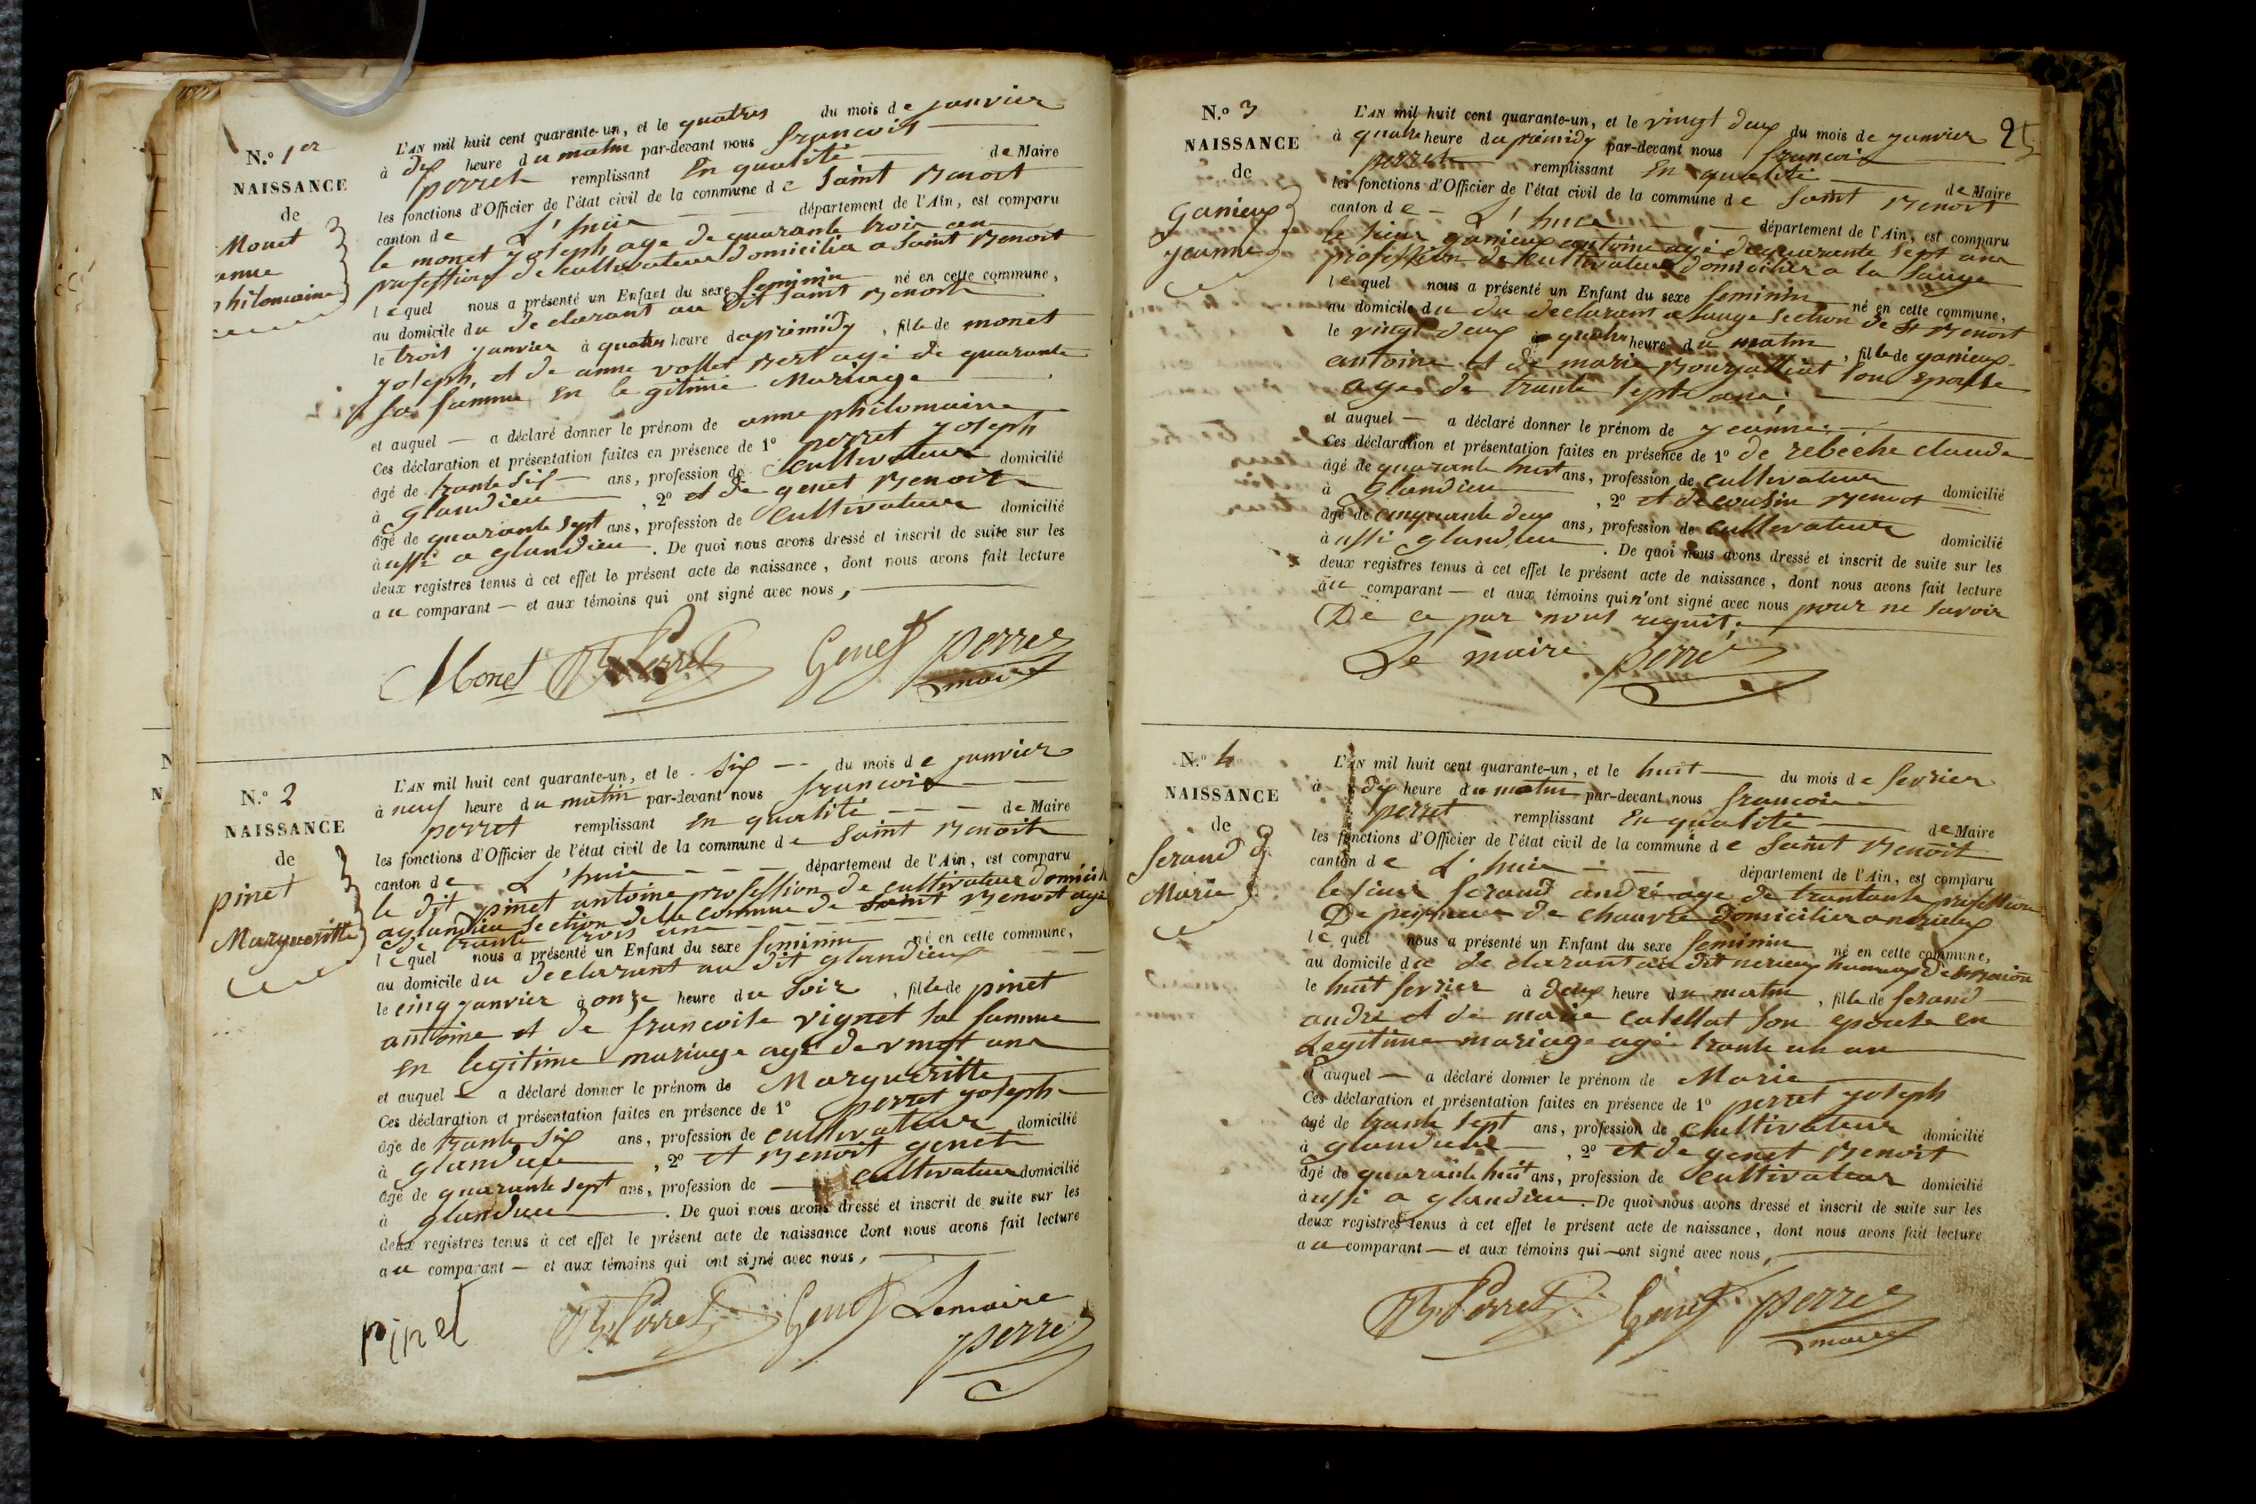 N.º 1er
NAISSANCE
de
Monet
anne
philomaine
L'AN mil huit cent quarante-un, et le quatres du mois de janvier
à dix heure du matin par-devant nous francois
perret remplissant En qualité de Maire
les fonctions d'Officier de l'état civil de la commune de Saint Benoit
canton de L'huie département de l'Ain, est comparu
le monet joseph age de quarante trois an
profession de cultivateur domicilié a Saint Benoit
lequel nous a présenté un Enfant du sexe feminin né en cette commune,
au domicile du declarant au dit Saint Benoit
le trois janvier à quatres heure daprémidy, fille de monet
joseph, et de anne vollet Bert agé de quarante
Sa famme en legitime Mariage
et auquel — a déclaré donner le prénom de anne philomaine
Ces déclaration et présentation faites en présence de 1º perret joseph
âgé de trante Six ans, profession de Cultivateur domicilié
à Glandieu, 2º et de genet Benoit
âgé de quarante Sept ans, profession de Cultivateur domicilié
à ussi a glandieu. De quoi nous avons dressé et inscrit de suite sur les
deux registres tenus à cet effet le présent acte de naissance, dont nous avons fait lecture
au comparant — et aux témoins qui ont signé avec nous,
Monet Perret Genet perret
maire
N.º 2
NAISSANCE
de
pinet
Margueritte
L'AN mil huit cent quarante-un, et le Six du mois de janvier
à neuf heure du matin par-devant nous francois
perret remplissant En qualité de Maire
les fonctions d'Officier de l'état civil de la commune de Saint Benoit
canton de L'huie département de l'Ain, est comparu
le dit pinet antoine profession de cultivateur domicilié
a glandieu Section de la Commune de Saint Benoit agé
de trante trois ans
lequel nous a présenté un Enfant du sexe feminin né en cette commune,
au domicile du declarant au dit glandieux
le cinq janvier à onze heure du Soir, fille de pinet
antoine et de francoise vignet Sa famme
en legitime mariage agé de vingt ans
et auquel a déclaré donner le prénom de Margueritte
Ces déclaration et présentation faites en présence de 1º perret joseph
âgé de trante Six ans, profession de cultivateur domicilié
à glandieu, 2º et Benoit genet
âgé de quarante Sept ans, profession de cultivateur domicilié
à glandieu. De quoi nous avons dressé et inscrit de suite sur les
deux registres tenus à cet effet le présent acte de naissance dont nous avons fait lecture
au comparant — et aux témoins qui ont signé avec nous,
pinet Perret Genet Le maire
perret
25
N.º 3
NAISSANCE
de
Ganieux
jeanne
L'AN mil huit cent quarante-un, et le vingt deux du mois de janvier
à quatre heure daprémidy par-devant nous francois
perret remplissant En qualité de Maire
les fonctions d'Officier de l'état civil de la commune de Saint Benoit
canton de L'huie département de l'Ain, est comparu
le Sieur ganieux antoine agé de quarante Sept ans
profession de Cultivateur domicilier a la Sauge
lequel nous a présenté un Enfant du sexe feminin né en cette commune,
au domicile du du declarant a Sauge Section de St Benoit
le vingt deux à quatre heure du matin, fille de ganieux
antoine et de marie Bourjaillat Son Epouse
agee de trante Septe ans,
et auquel — a déclaré donner le prénom de jeanne
Ces déclaration et présentation faites en présence de 1º de rebeche claude
âgé de quarante huit ans, profession de cultivateur
à Glandieu, 2º et de cousin Benoit domicilié
âgé de cinquante deux ans, profession de cultivateur
à ussi glandieu domicilié
. De quoi nous avons dressé et inscrit de suite sur les
deux registres tenus à cet effet le présent acte de naissance, dont nous avons fait lecture
au comparant — et aux témoins qui n'ont signé avec nous pour ne Savoir
De ce par nous requit.
Le maire perret
N.º 4
NAISSANCE
de
ferand
Marie
L'AN mil huit cent quarante-un, et le huit du mois de fevrier
à dix heure du matin par-devant nous francois
perret remplissant En qualité de Maire
les fonctions d'Officier de l'état civil de la commune de Saint Benoit
canton de L'huie département de l'Ain, est comparu
le Sieur ferand andré age de profession
De peigneur de chanvre domicilier a nerieux
lequel nous a présenté un Enfant du sexe feminin né en cette commune,
au domicile du declarant au dit nerieux hameau
le huit fevrier à deux heure du matin, fille de ferand
andré et de marie catellat Son epouse en
Legitime mariage agé trante un an
et auquel — a déclaré donner le prénom de Marie
Ces déclaration et présentation faites en présence de 1º perret joseph
âgé de trante Sept ans, profession de Cultivateur domicilié
à glandieu, 2º et de genet Benoit
âgé de quarante huit ans, profession de Cultivateur domicilié
à ussi a glandieu. De quoi nous avons dressé et inscrit de suite sur les
deux registres tenus à cet effet le présent acte de naissance, dont nous avons fait lecture
au comparant — et aux témoins qui ont signé avec nous,
Perret Genet perret
maire